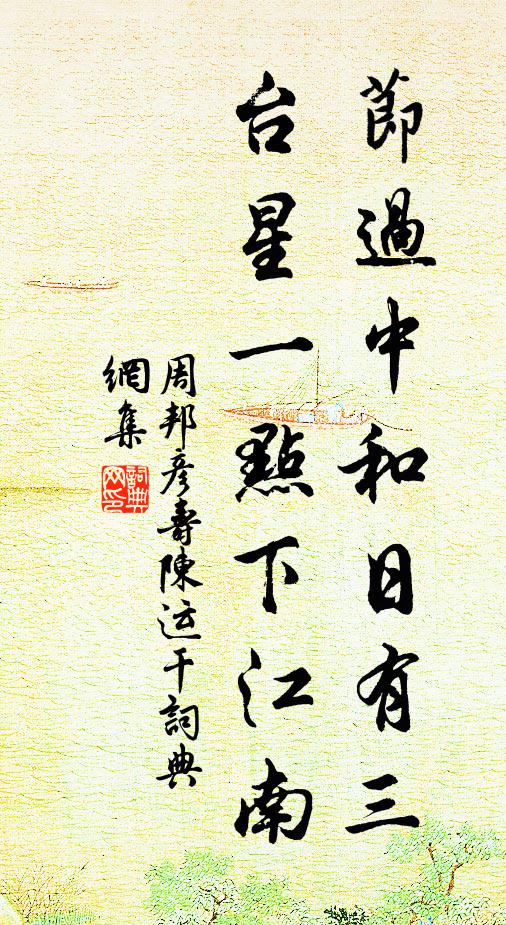 節過中和日有三
台星一點下江南
周邦彦壽陳运干詞典
網集
詞典網印